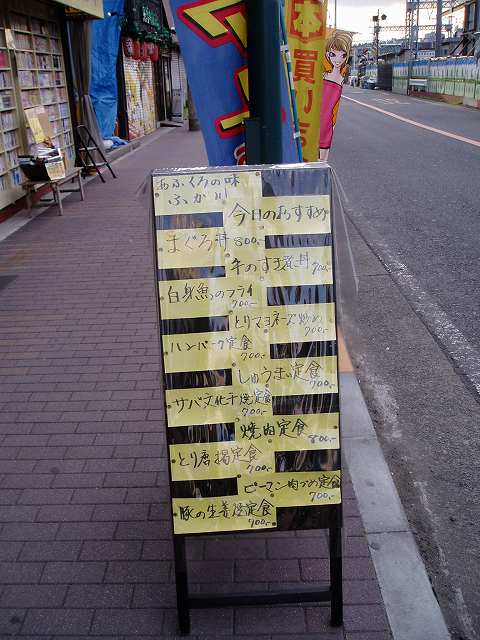 おふくろの味
ふか川
今日のおすすめ
まぐろ丼 800-
牛のすき煮丼 700-
白身魚のフライ
700-
とりマヨネーズ炒め
700-
ハンバーグ定食
700-
しゅうまい定食
700-
サバ文化干焼定食
700-
焼肉定食
800-
とり唐揚定食
700-
ピーマン肉づめ定食
700-
豚の生姜焼定食
700-
本
買います